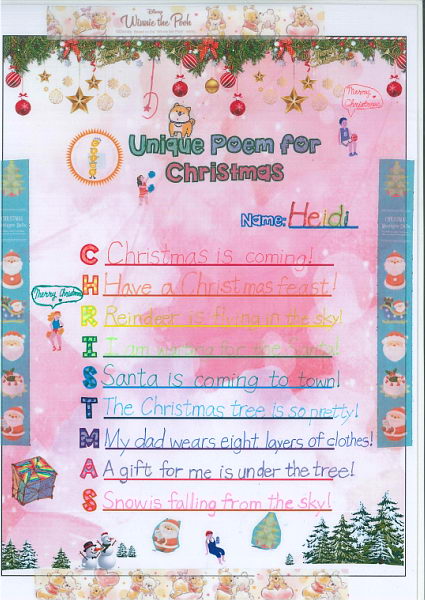 Disney
Winnie the Pooh
Merry
Christmas
Unique Poem for
Christmas
Name: Heidi
C Christmas is coming!
H Have a Christmas feast!
R Reindeer is flying in the sky!
I I am waiting for the Santa!
S Santa is coming to town!
T The Christmas tree is so pretty!
Merry Christmas
M My dad wears eight layers of clothes!
A A gift for me is under the tree!
S Snow is falling from the sky!